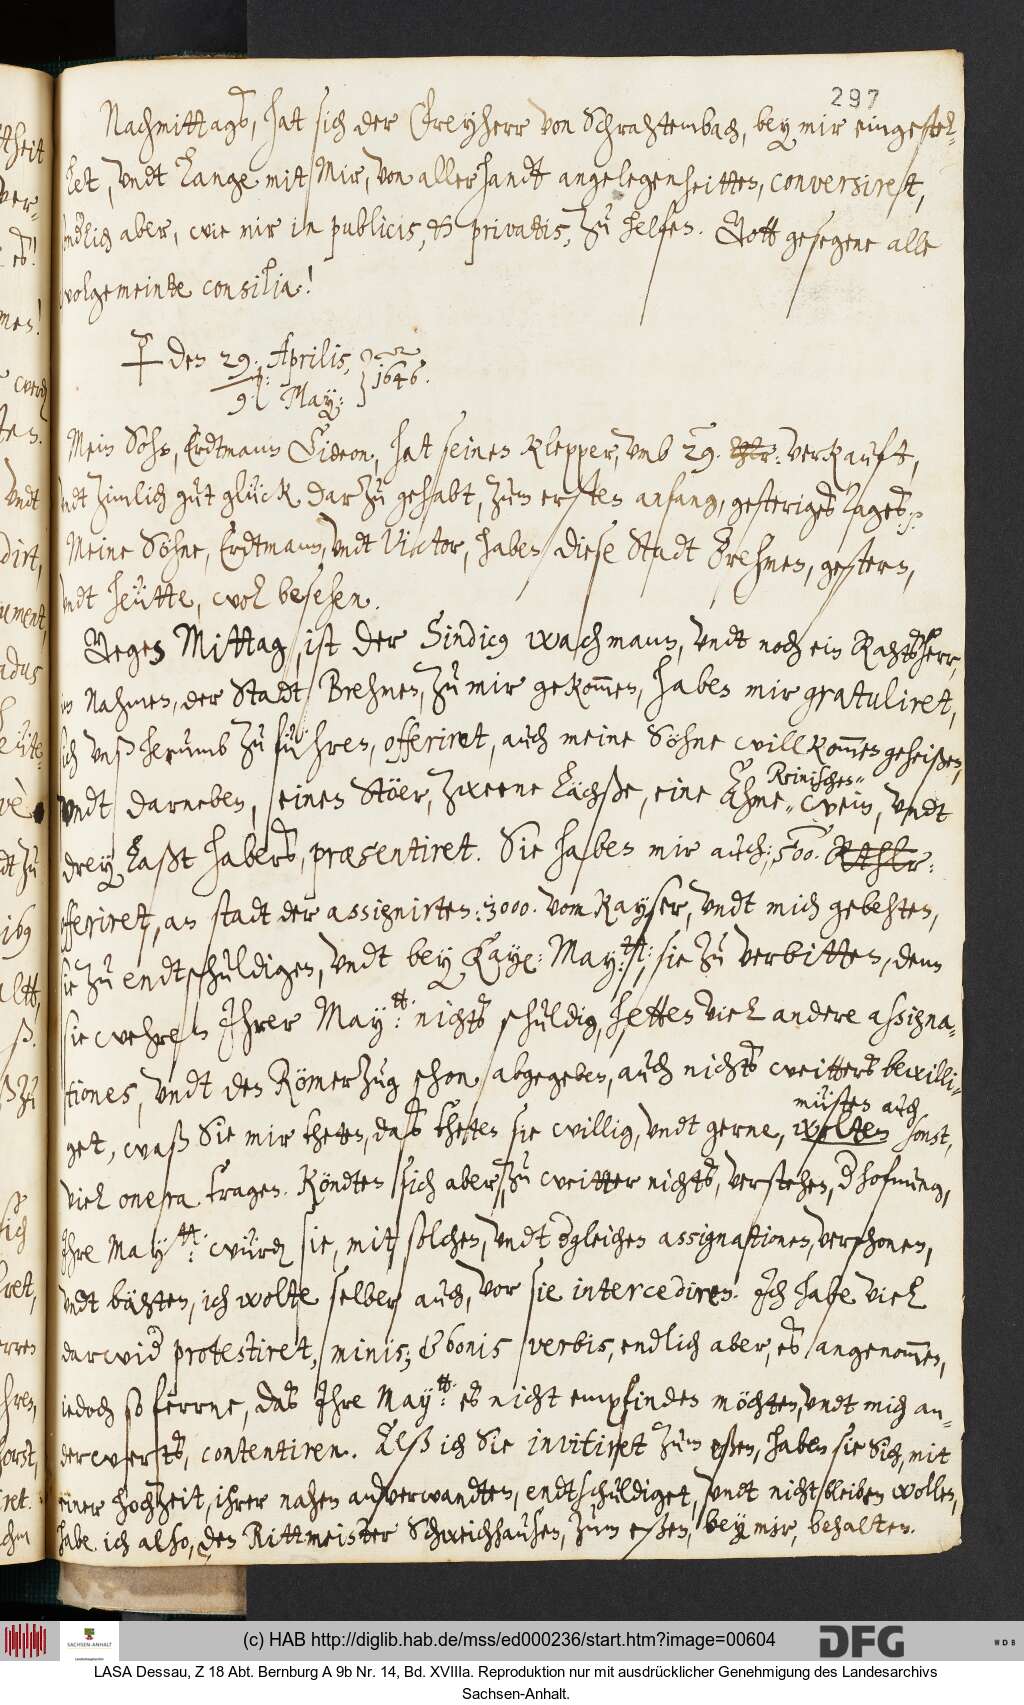 297
Nachmittags, hat sich der Freyherr von Schrahtembach, bey mir eingestel-
let, undt lange mit Mir, von allerhandt angelegenheitten, conversiret,
endlich aber, wie mir in publicis, et privatis, zu helfen. Gott gesegene alle
wolgemeinte consilia!
♀ den 29. Aprilis,
9. May: 1646.
Mein Sohn, Erdtmann Gideon, hat seinen klepper, umb 29. Thlr: verkauft,
undt zimlich gut glück darzu gehabt, zum ersten anfang, gesteriges Tages.
Meine Söhne, Erdtmann, undt Victor, haben diese Stadt Brehmen, gestern,
undt heütte, wol besehen.
Gegen Mittag, ist der Sindicus Wachmann, undt noch ein Rahtsherr,
im Nahmen, der Stadt Brehmen, zu mir gekommen, haben mir gratuliret,
sich unß herumb zu führen, offeriret, auch meine Söhne willkommen geheißen,
undt darneben, einen Stöer, zweene Lächße, eine Ahme Reinischen wein, undt
drey Laßt habers, præsentiret. Sie haben mir auch 500. Rthlr:
offeriret, an stadt der assignirten: 3000. vom Kayser, undt mich gebehten,
sie zu endtschuldigen, undt bey Kayl: Maytt: sie zu verbitten, denn
sie wehren Ihrer Maytt: nichts schuldig, hetten viel andere assigna-
tiones, undt den Römerzug schon abgegeben, auch nichts weitters bewilli-
get, waß Sie mir theten, das theten sie willig, undt gerne, müsten auch sonst,
wolten
viel onera tragen. Köndten sich aber, zu weitter nichts, verstehen, der hofnung,
Ihre Maytt: würden sie, mit solchen, undt dergleichen assignationen, verschonen,
undt bähten, ich wolte selber auch, vor sie intercediren. Ich habe viel
darwider protestiret, minis, et bonis verbis, endlich aber, es angenommen,
iedoch so ferrne, das Ihre Maytt: es nicht empfinden möchten, undt mich an-
derwerts, contentiren. Alß ich Sie invitiret zum eßen, haben sie Sich, mit
einer hochzeit, ihrer nahen anverwandten, endtschuldiget, undt nicht bleiben wollen,
habe ich also, den Rittmeister Schweichhausen, zum eßen, bey mir, behalten.
(c) HAB http://diglib.hab.de/mss/ed000236/start.htm?image=00604
SACHSEN-ANHALT
DFG
WDB
LASA Dessau, Z 18 Abt. Bernburg A 9b Nr. 14, Bd. XVIIIa. Reproduktion nur mit ausdrücklicher Genehmigung des Landesarchivs
Sachsen-Anhalt.